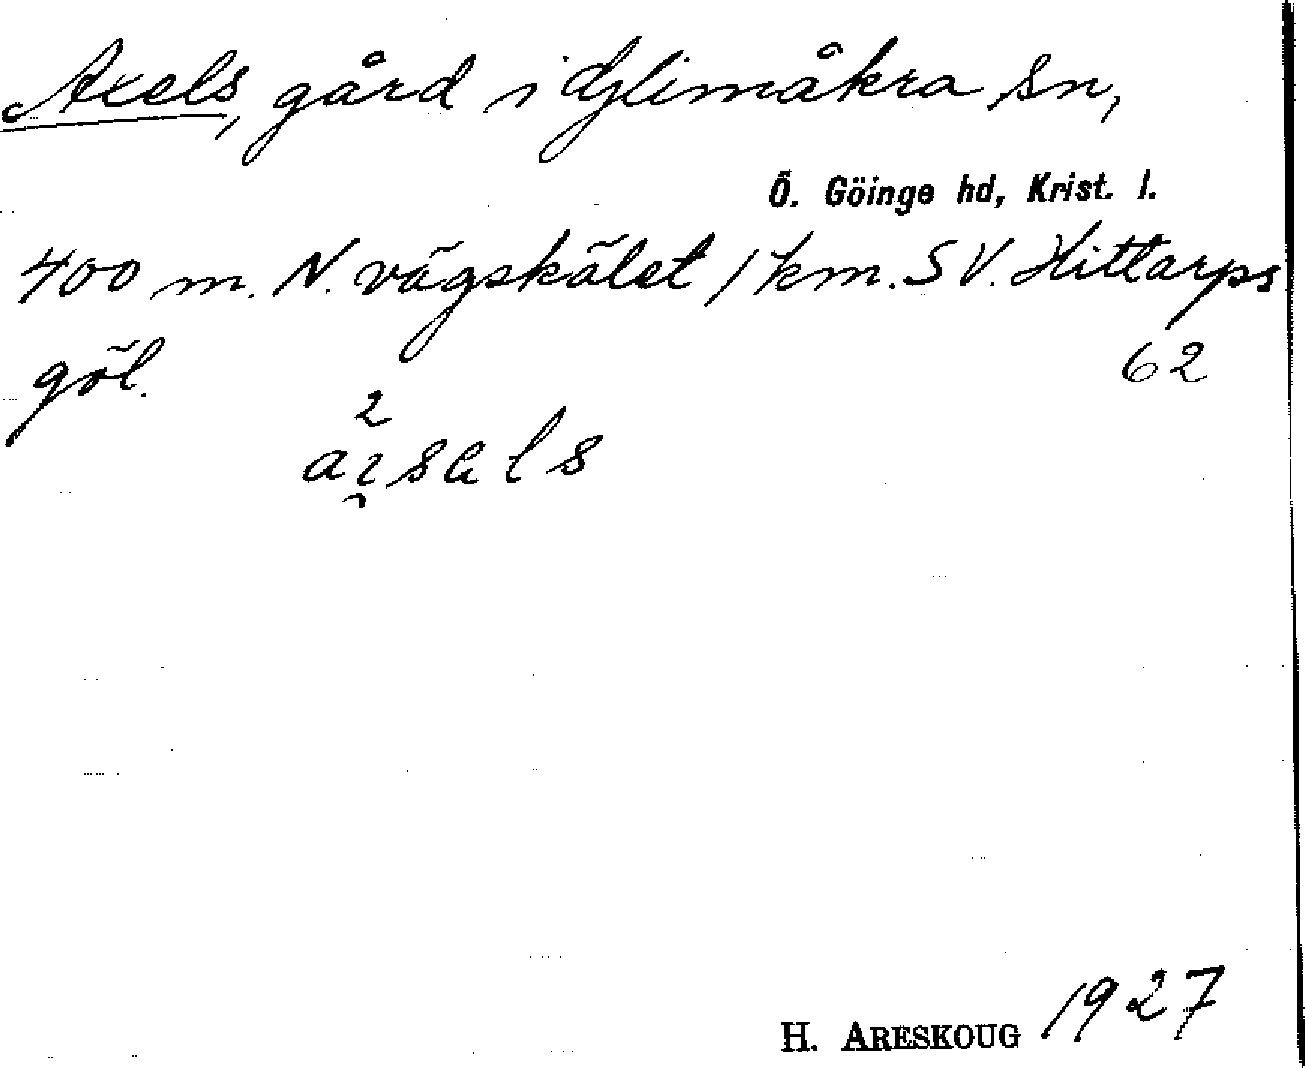 Axels, gård i Glimåkra sn,
Ö. Göinge hd, Krist. l.
400 m. N. vägskälet 1 km. SV. Hittarps
göl.
62
2
aı̯sals
H. ARESKOUG 1927